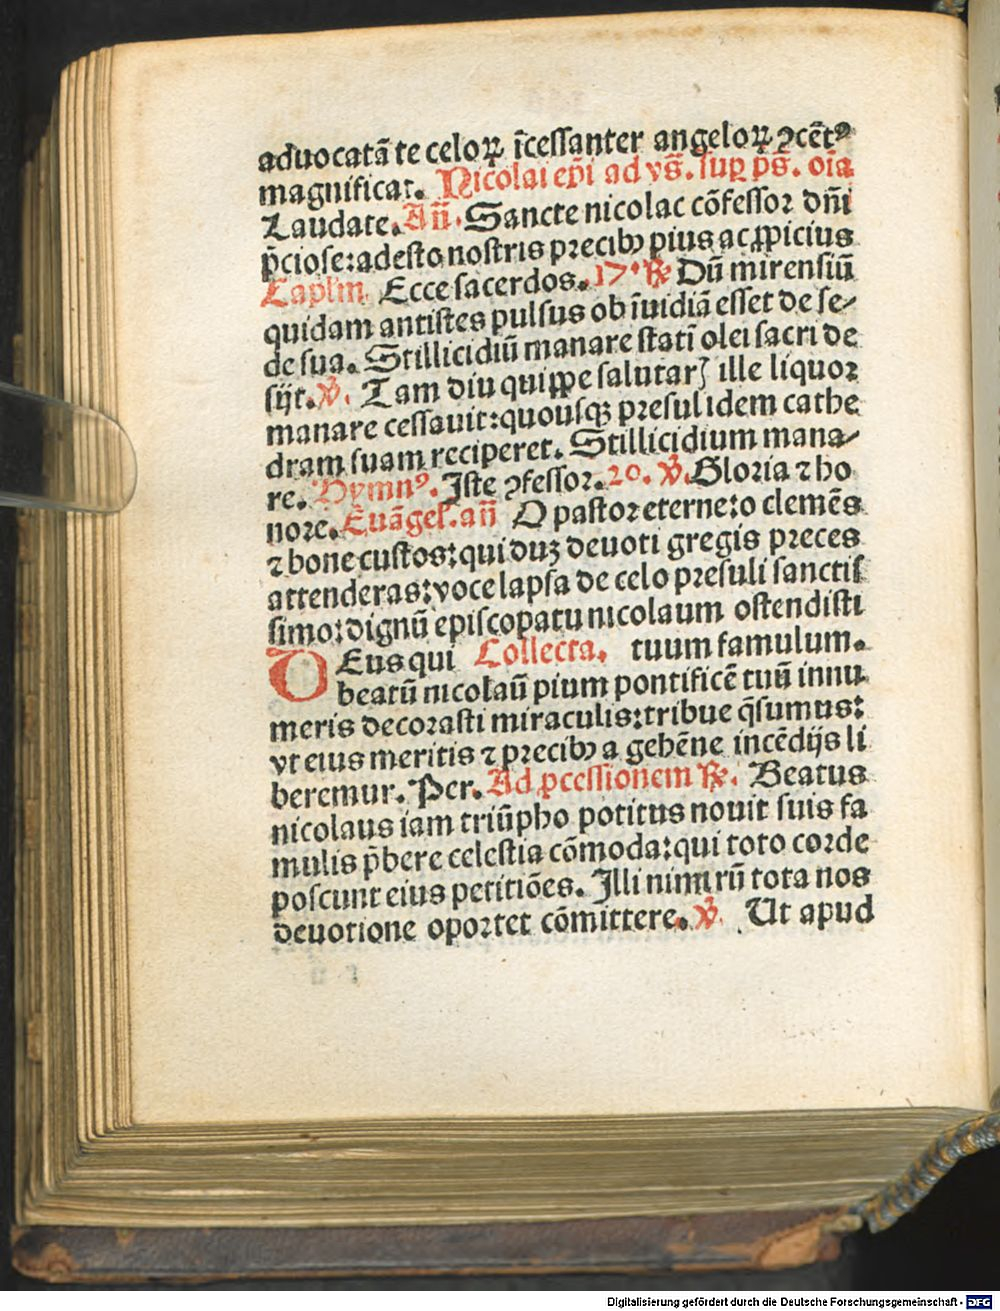 aduocatā te celoꝝ īcessanter angeloꝝ ꝯcētꝰ
magnificat. Nicolai ep̄i ad vs̄. suꝑ ps̄. oīa
Laudate. Añ. Sancte nicolae cōfessor dn̄i
p̄ciose: adesto nostris precibꝰ pius ac ꝓpicius
Capl'm Ecce sacerdos. 17. ℟ Dū mirensiū
quidam antistes pulsus ob īuidiā esset de se-
de sua. Stillicidiū manare statī olei sacri de
sijt. ℣. Tam diu quiꝓpe salutarꝭ ille liquor
manare cessauit: quousqꝫ presul idem cathe
dram suam reciperet. Stillicidium mana-
re. Hymnꝰ. Iste ꝯfessor. 20. ℣. Gloria ⁊ ho
nore. Euāgel. añ O pastor eterne: o clemēs
⁊ bone custos: qui duꝫ deuoti gregis preces
attenderas: voce lapsa de celo presuli sanctis
simo: dignū episcopatu nicolaum ostendisti
DEus qui Collecta. tuum famulum.
beatū nicolaū pium pontificē tuū innu
meris decorasti miraculis: tribue q̄sumus:
vt eius meritis ⁊ precibꝰ a gehēne incēdijs li
beremur. Per. Ad ꝓcessionem ℟. Beatus
nicolaus iam triūpho potitus nouit suis fa
mulis p̄bere celestia cōmoda: qui toto corde
poscunt eius petitiōes. Illi nimirū tota nos
deuotione oportet cōmittere. ℣. Ut apud
Digitalisierung gefördert durch die Deutsche Forschungsgemeinschaft - DFG